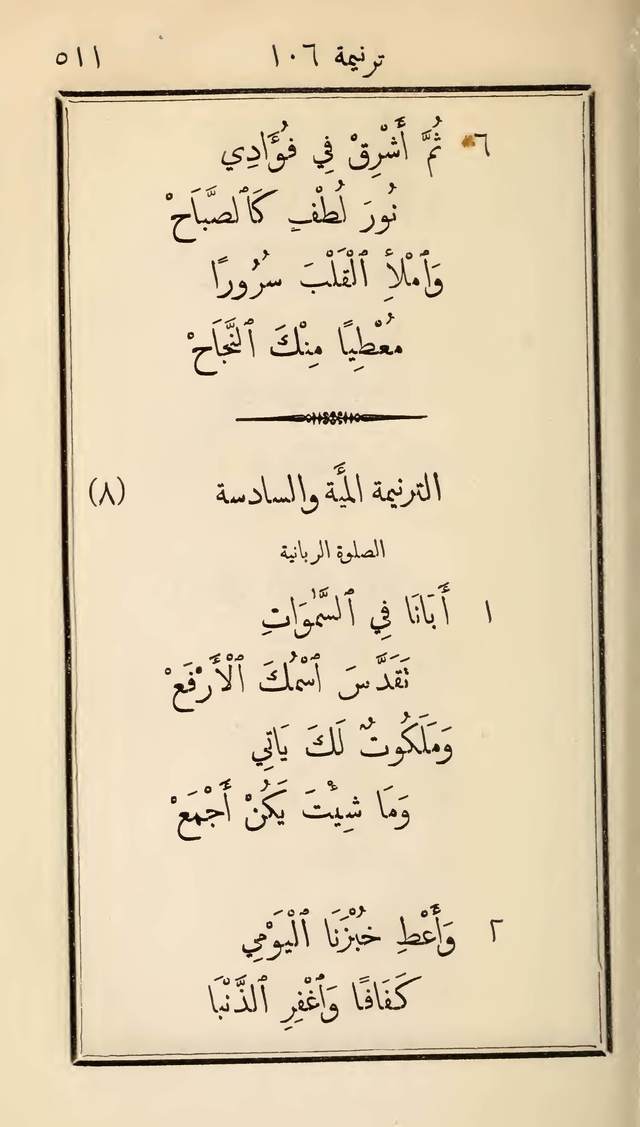 ترنيمة ١٠٦ ٥١١
٦ ثُمَّ أَشْرِقْ فِي فُؤَادِي
نُورَ لُطْفٍ كَٱلصَّبَاحْ
وَٱمْلَأِ ٱلْقَلْبَ سُرُورًا
مُعْطِيًا مِنْكَ ٱلنَّجَاحْ
الترنيمة المِئَة والسادسة (٨)
الصلوة الربانية
١ أَبَانَا فِي ٱلسَّمٰوَاتِ
تَقَدَّسَ ٱسْمُكَ ٱلْأَرْفَعْ
وَمَلَكُوتٌ لَكَ يَاتِي
وَمَا شِئْتَ يَكُنْ أَجْمَعْ
٢ وَأَعْطِ خُبْزَنَا ٱلْيَوْمِي
كَفَافًا وَٱغْفِرِ ٱلذَّنْبَا